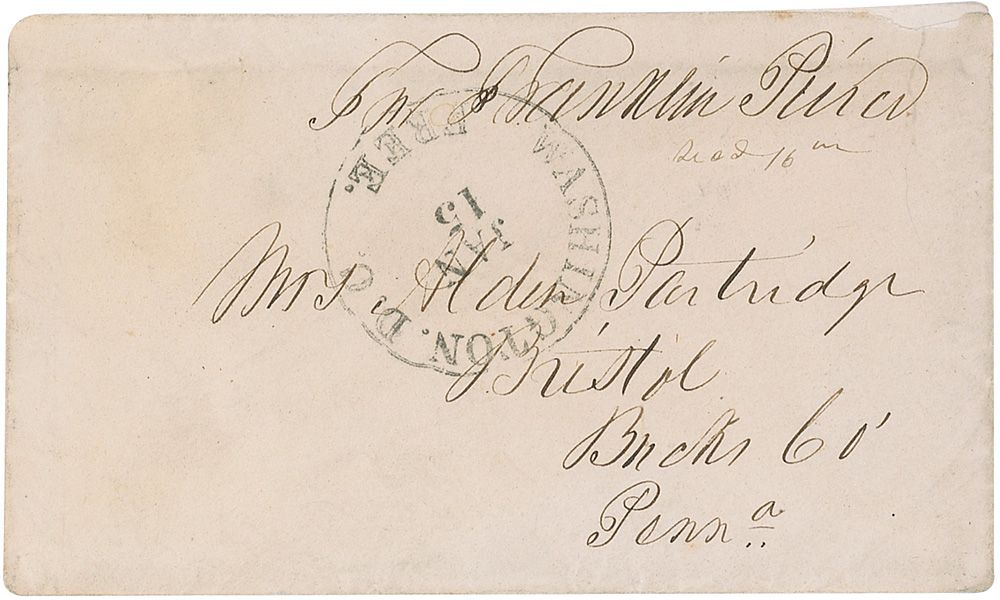 Fm Franklin Pierce
Recd 16th
WASHINGTON. D. C.
FREE.
JAN
15
Mrs Alden Partridge
Bristol
Bucks Co
Penna